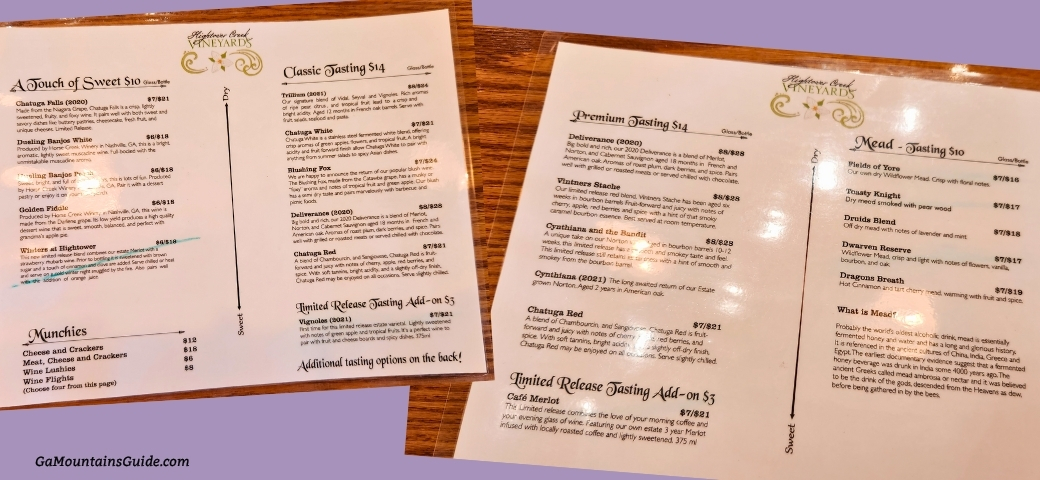 Hightower Creek
VINEYARDS
A Touch of Sweet $10 Glass/Bottle
Chatuga Falls (2020) $7/$21
Made from the Niagara Grape, Chatuga Falls is a crisp, lightly
sweetened, fruity, and foxy wine. It pairs well with both sweet and
savory dishes like buttery pastries, cheesecake, fresh fruit, and
unique cheeses. Limited Release.
Dueling Banjos White $6/$18
Produced by Horse Creek Winery in Nashville, GA, this is a bright,
aromatic, lightly sweet muscadine wine. Full bodied with the
unmistakable muscadine aroma.
Dueling Banjos $6/$18
Sweet, bright, and full this is lots of fun. Produced
by Horse Creek Winery GA. Pair it with a dessert
pastry or enjoy it on
Golden Fiddle $6/$18
Produced by Horse Creek Winery, in Nashville, GA, this wine is
made from the Darlene grape. Its low yield produces a high quality
dessert wine that is sweet, smooth, balanced, and perfect with
grandma's apple pie.
Winters at Hightower $6/$18
This new limited release blend combines our estate Merlot with a
strawberry rhubarb wine. Prior to bottling it is sweetened with brown
sugar and a touch of cinnamon and clove are added. Serve chilled or heat
and serve on a cold winter night snuggled by the fire. Also pairs well
with the addition of orange juice.
Munchies
Cheese and Crackers $12
Meat, Cheese and Crackers $18
Wine Lushies $6
Wine Flights $8
(Choose four from this page)
Dry
Sweet
Classic Tasting $14 Glass/Bottle
Trillium (2021) $8/$24
Our signature blend of Vidal, Seyval and Vignoles. Rich aromas
of ripe pear, citrus, and tropical fruit lead to a crisp and
bright acidity. Aged 12 months in French oak barrels. Serve with
fruit, salads, seafood and pasta.
Chatuga White $7/$21
Chatuga White is a stainless steel fermented white blend, offering
crisp aromas of green apples, flowers, and tropical fruit. A bright
acidity and fruit forward finish allow Chatuga White to pair with
anything from summer salads to spicy Asian dishes.
Blushing Fox $7/$24
We are happy to announce the return of our popular blush wine.
The Blushing Fox, made from the Catawba grape, has a musky or
"foxy" aroma and notes of tropical fruit and green apple. Our blush
has a semi dry taste and pairs marvelously with barbecue and
picnic foods.
Deliverance (2020) $8/$28
Big bold and rich, our 2020 Deliverance is a blend of Merlot,
Norton, and Cabernet Sauvignon aged 18 months in French and
American oak. Aromas of roast plum, dark berries, and spice. Pairs
well with grilled or roasted meats or served chilled with chocolate.
Chatuga Red $7/$21
A blend of Chambourcin, and Sangiovese, Chatuga Red is fruit-
forward and juicy with notes of cherry, apple, red berries, and
spice. With soft tannins, bright acidity, and a slightly off-dry finish,
Chatuga Red may be enjoyed on all occasions. Serve slightly chilled.
Limited Release Tasting Add-on $3
Vignoles (2021) $7/$21
First time for this limited release estate varietal. Lightly sweetened
with notes of green apple and tropical fruits. It's a perfect wine to
pair with fruit and cheese boards and spicy dishes. 375ml
Additional tasting options on the back!
Hightower Creek
VINEYARDS
Premium Tasting $14 Glass/Bottle
Deliverance (2020) $8/$28
Big bold and rich, our 2020 Deliverance is a blend of Merlot,
Norton, and Cabernet Sauvignon aged 18 months in French and
American oak. Aromas of roast plum, dark berries, and spice. Pairs
well with grilled or roasted meats or served chilled with chocolate.
Vintners Stache $8/$28
Our limited release red blend, Vintners Stache has been aged six
weeks in bourbon barrels. Fruit-forward and juicy with notes of
cherry, apple, red berries and spice with a hint of that smoky
caramel bourbon essence. Best served at room temperature.
Cynthiana and the Bandit $8/$28
A unique take on our Norton in bourbon barrels 10-12
weeks this limited release has a and smokey taste and feel.
This limited release still retains its with a hint of smooth and
smokey from the bourbon barrel.
Cynthiana (2021) The long awaited return of our Estate
grown Norton. Aged 2 years in American oak.
Chatuga Red $7/$21
A blend of Chambourcin, and Sangiovese, Chatuga Red is fruit-
forward and juicy with notes of cherry, red berries, and
spice. With soft tannins, bright acidity, a slightly off-dry finish,
Chatuga Red may be enjoyed on all occasions. Serve slightly chilled.
Limited Release Tasting Add-on $3
Café Merlot $7/$21
This Limited release combines the love of your morning coffee and
your evening glass of wine. Featuring our own estate 3 year Merlot
infused with locally roasted coffee and lightly sweetened. 375 ml
Dry
Sweet
Mead - Tasting $10 Glass/Bottle
Fields of Yore $7/$16
Our own dry Wildflower Mead. Crisp with floral notes.
Toasty Knight $7/$17
Dry mead smoked with pear wood
Druids Blend $7/$18
Off dry mead with notes of lavender and mint.
Dwarven Reserve $7/$17
Wildflower Mead, crisp and light with notes of flowers, vanilla,
bourbon, and oak.
Dragons Breath $7/$19
Hot Cinnamon and tart cherry mead, warming with fruit and spice.
What is Mead?
Probably the world's oldest alcoholic drink, mead is essentially
fermented honey and water and has a long and glorious history.
It is referenced in the ancient cultures of China, India, Greece and
Egypt. The earliest documentary evidence suggest that a fermented
honey beverage was drunk in India some 4000 years ago. The
ancient Greeks called mead ambrosia or nectar and it was believed
to be the drink of the gods, descended from the Heavens as dew,
before being gathered in by the bees.
GaMountainsGuide.com